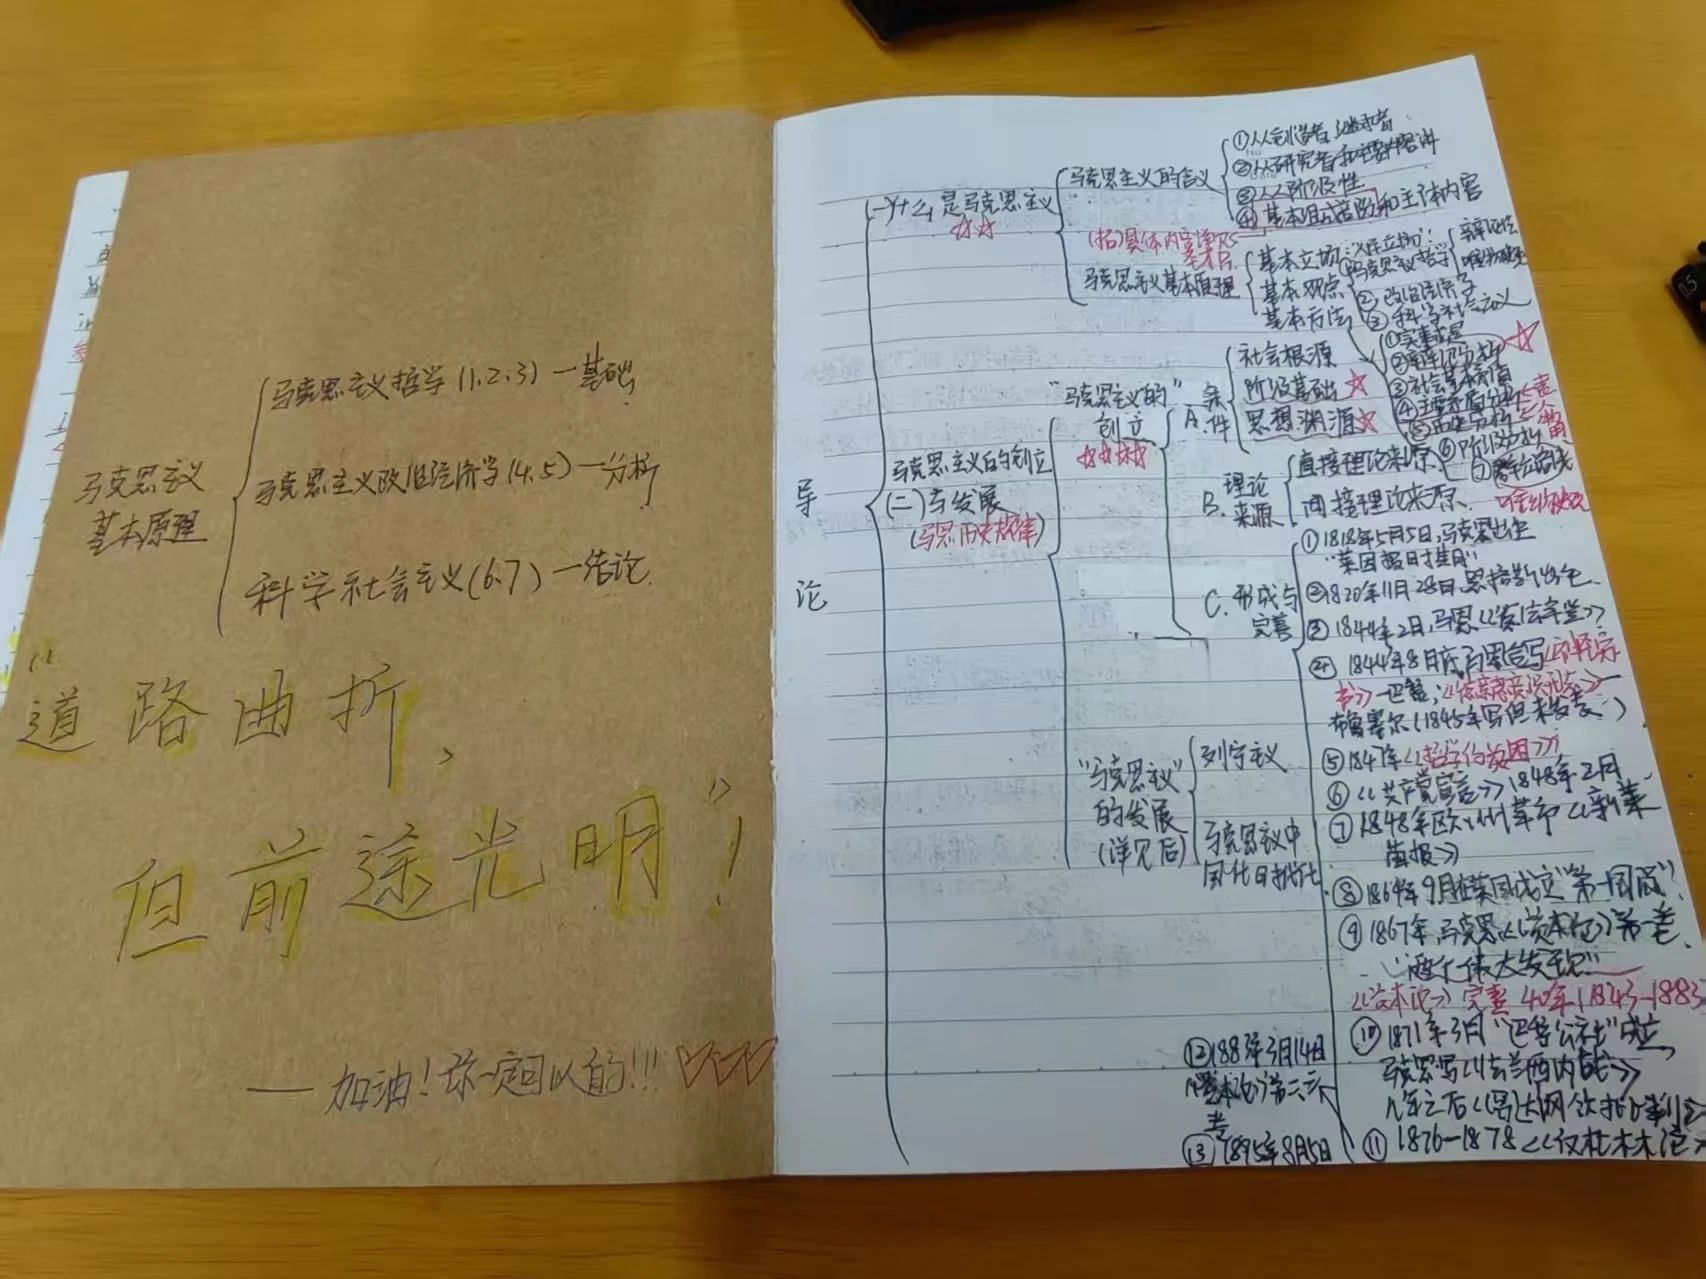 马克思主义
基本原理
马克思主义哲学(1.2.3)一基础
马克思主义政治经济学(4.5)一分析
科学社会主义(6.7)一结论
“道路曲折，
但前途光明”！
——加油！你一定可以的!!!
导
论
(一)什么是马克思主义
马克思主义的含义
①从创造者、继承者
②从研究者和主要内容讲
③从阶级性
④基本组成阶段和主体内容
马克思主义基本原理
基本立场
基本观点
基本方法
①马克思主义哲学
辩证法
②政治经济学
③科学社会主义
①实事求是
③社会基本矛盾
④主要矛盾分析
⑤历史分析
⑥阶级分析
⑦群众路线
马克思主义的创立
(二)与发展
(马恩历史规律)
“马克思主义的”
创立
A.条件
社会根源
阶级基础
思想渊源
B.理论
来源
直接理论来源
间接理论来源.
C.形成与
完善
①1818年5月5日,马克思出生
“莱因报日挂月”
②1820年11月28日恩格斯出生.
③1844年2月,马恩《德法年鉴》
④1844年8月底马恩合写《神圣家
书》一巴黎；《德意志意识形态》一
布鲁塞尔(1845年写但未发表)
⑤1847年《哲学的贫困》
⑥《共产党宣言》1848年2月
⑦1848年欧洲革命《新莱
茵报》
⑧1864年9月在英国成立“第一国际”
⑨1867年,马克思《资本论》第一卷.
“两个伟大发现”
《资本论》完整40年(1843-1883
⑩1871年3月“巴黎公社”成立
马克思写《法兰西内战》
几年之后《哥达纲领批判》
⑪1876-1878《反杜林论》
⑫1883年3月14日
⑬1895年8月5日
“马克思主义”
的发展
(详见后)
列宁主义
马克思主义中
国化时代化.